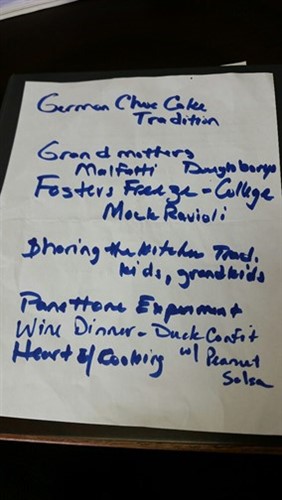 German Choc Cake
Tradition
Grandmothers
Malfatti
Fosters Freeze - College
Mock Ravioli
Sharing the Kitchen Trad.
kids, grandkids
Panettone Experiment
Wine Dinner - Duck Confit
Heart of Cooking w/ Peanut
Salsa